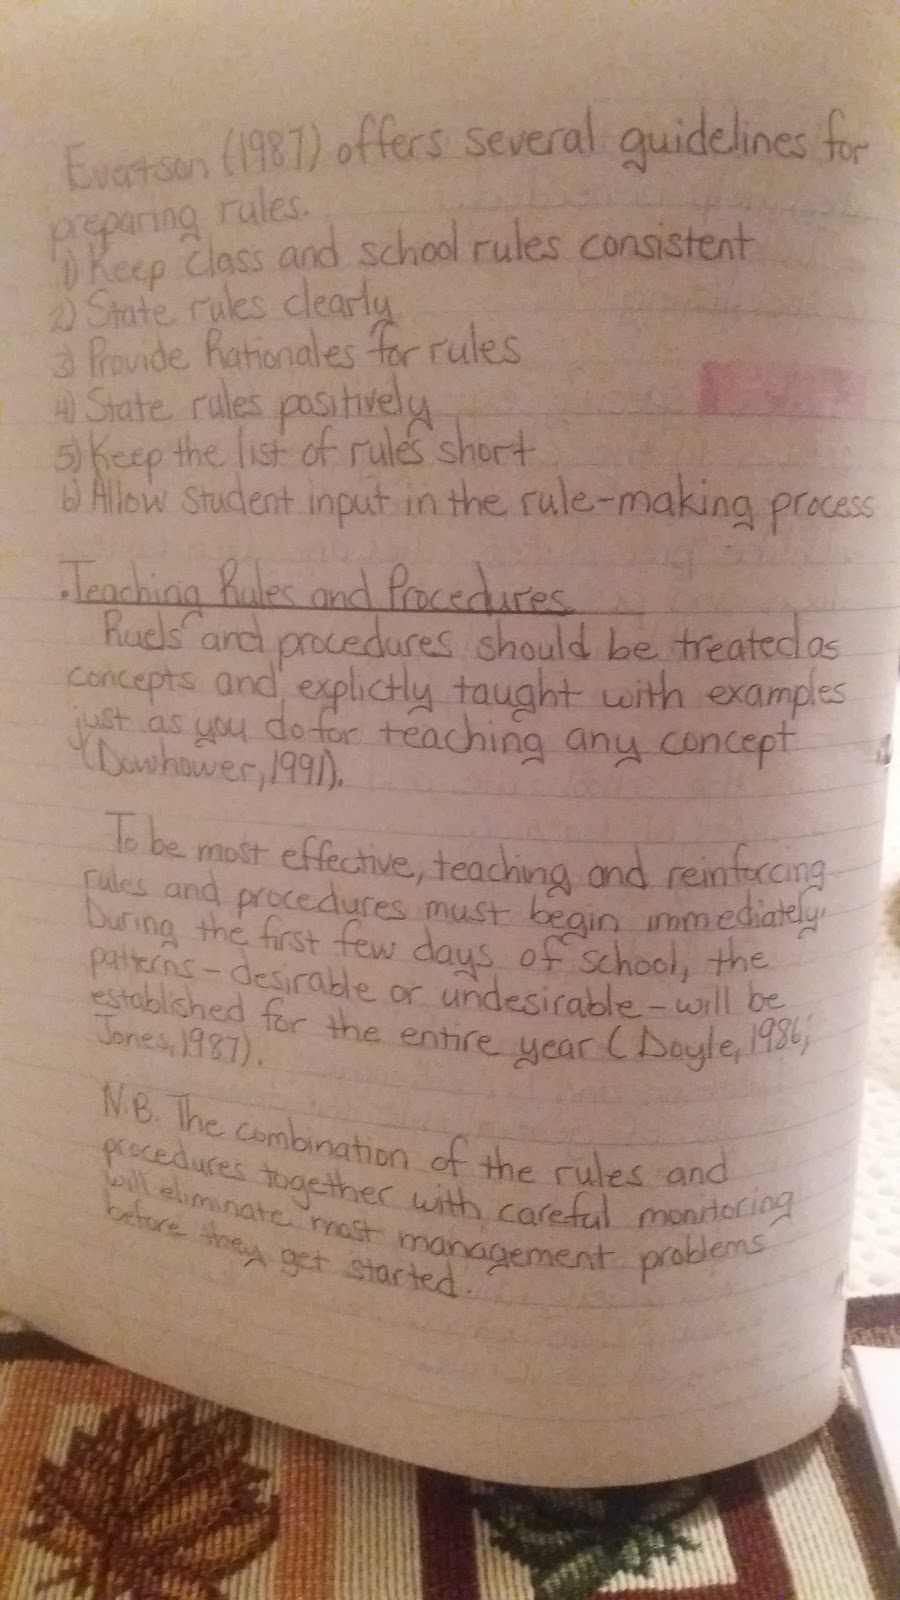 Evertson (1987) offers several guidelines for
preparing rules.
1) Keep class and school rules consistent
2) State rules clearly
3) Provide Rationales for rules
4) State rules positively
5) Keep the list of rules short
6) Allow student input in the rule-making process
.Teaching Rules and Procedures
Ruels and procedures should be treated as
concepts and explictly taught with examples
just as you do for teaching any concept
(Dowhower, 1991).
To be most effective, teaching and reinforcing
rules and procedures must begin immediately.
During the first few days of school, the
patterns - desirable or undesirable - will be
established for the entire year (Doyle, 1986;
Jones, 1987).
N.B. The combination of the rules and
procedures together with careful monitoring
will eliminate most management problems
before they get started.